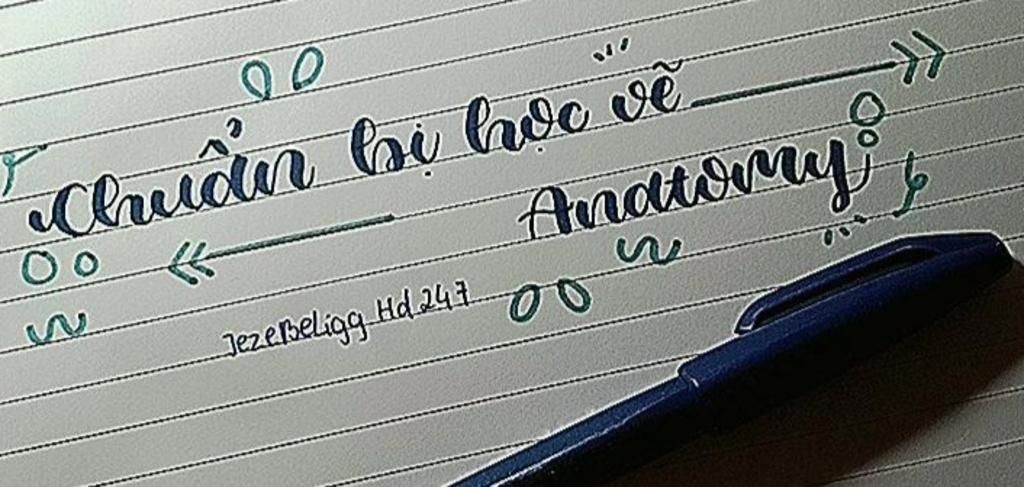 Chuẩn bị học vẽ
Anatomy
JezeBeligg Hd 247